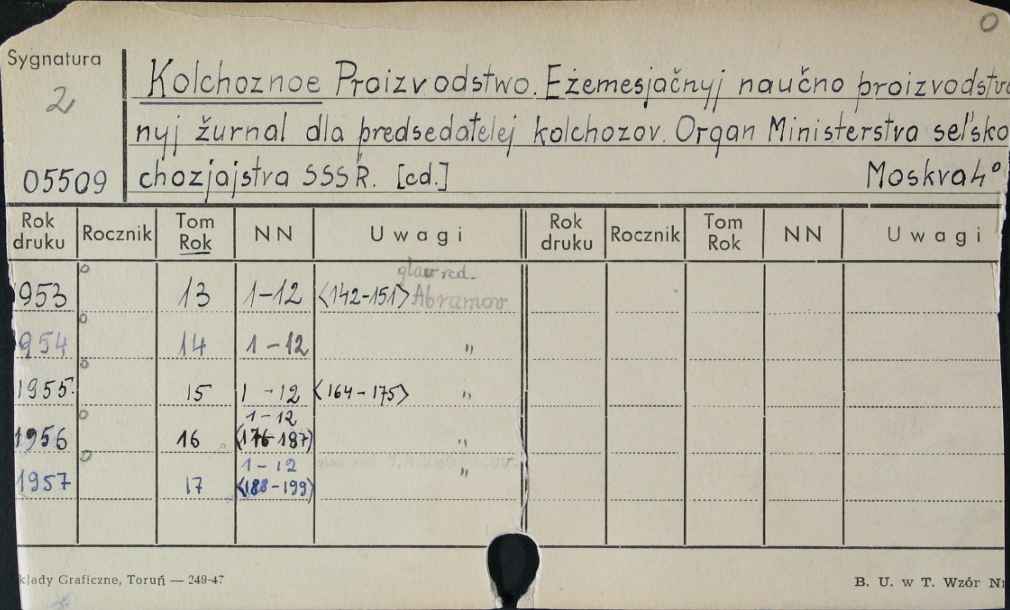 O
Sygnatura
2
05509
Kolchoznoe Proizvodstwo. Eżemesjačnyj naučno proizvodstve
nyj žurnal dla predsedatelej kolchozov. Organ Ministerstva sel'sko
chozjajstva SSSR. [cd.] Moskva 4°
Rok druku Rocznik Tom Rok NN Uwagi Rok druku Rocznik Tom Rok NN Uwagi
glav red.
953 o 13 1-12 <142-151> Abramov
954 o 14 1-12 "
1955. o 15 1-12 <164-175> "
1956 o 16 1-12 <176-187> "
1957 o 17 1-12 <188-199> "
kłady Graficzne, Toruń — 249-47
B. U. w T. Wzór Nr